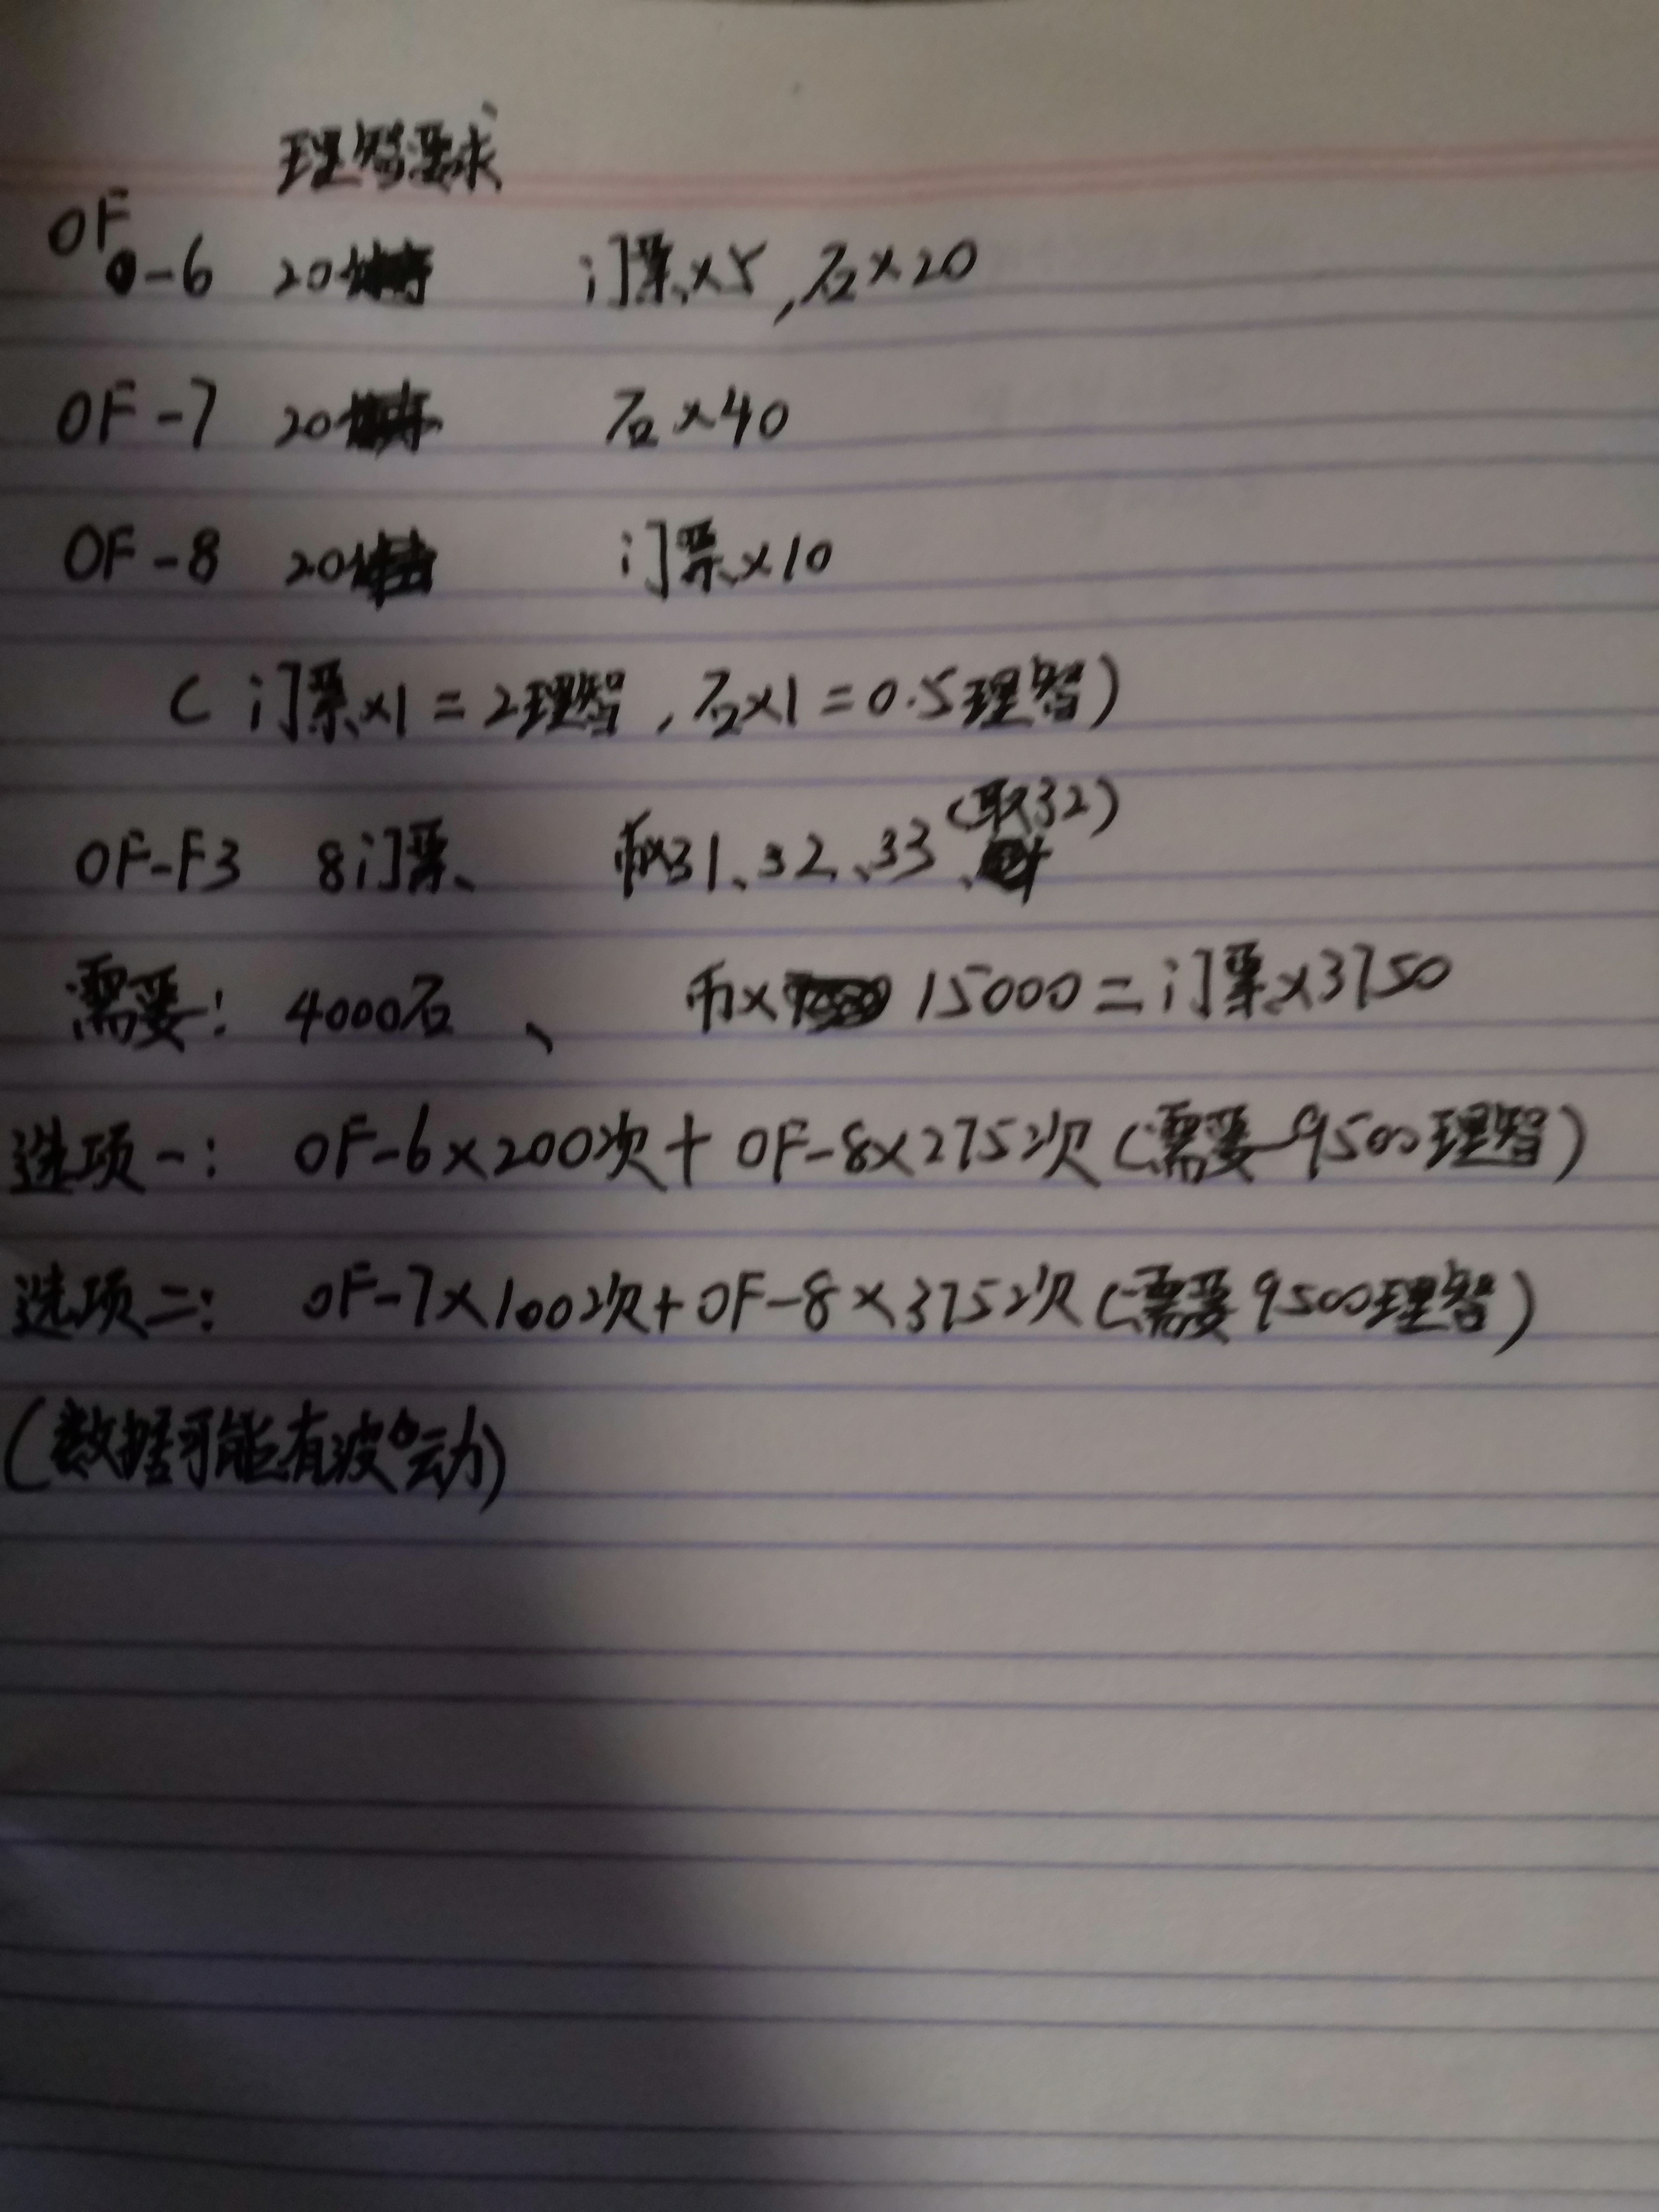 理智要求
OF-6 20 门票×5,石×20
OF-7 20 石×40
OF-8 20 门票×10
(门票×1=2理智,石×1=0.5理智)
OF-F3 8门票、 币×31、32、33、(取32)
需要: 4000石、 币× 15000=门票×3750
选项一: OF-6×200次+OF-8×275次(需要9500理智)
选项二: OF-7×100次+OF-8×375次(需要9500理智)
(数据可能有波动)